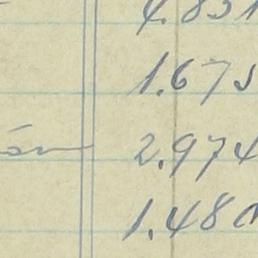 4.831
1.675
ón 2.974
1.480